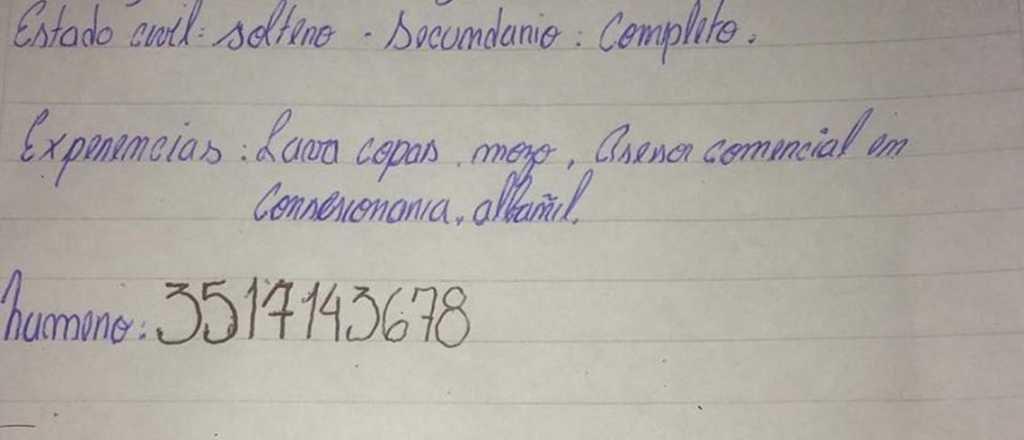 Estado civil: soltero - Secundario: Completo.
Experiencias: Lava copas, mozo, Asesor comercial en
Consesionaria, albañil.
numero: 3517143678